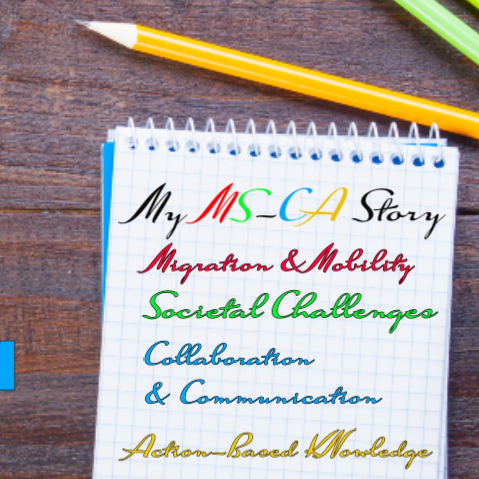 My MS-CA Story
Migration & Mobility
Societal Challenges
Collaboration
& Communication
Action-Based KNowledge